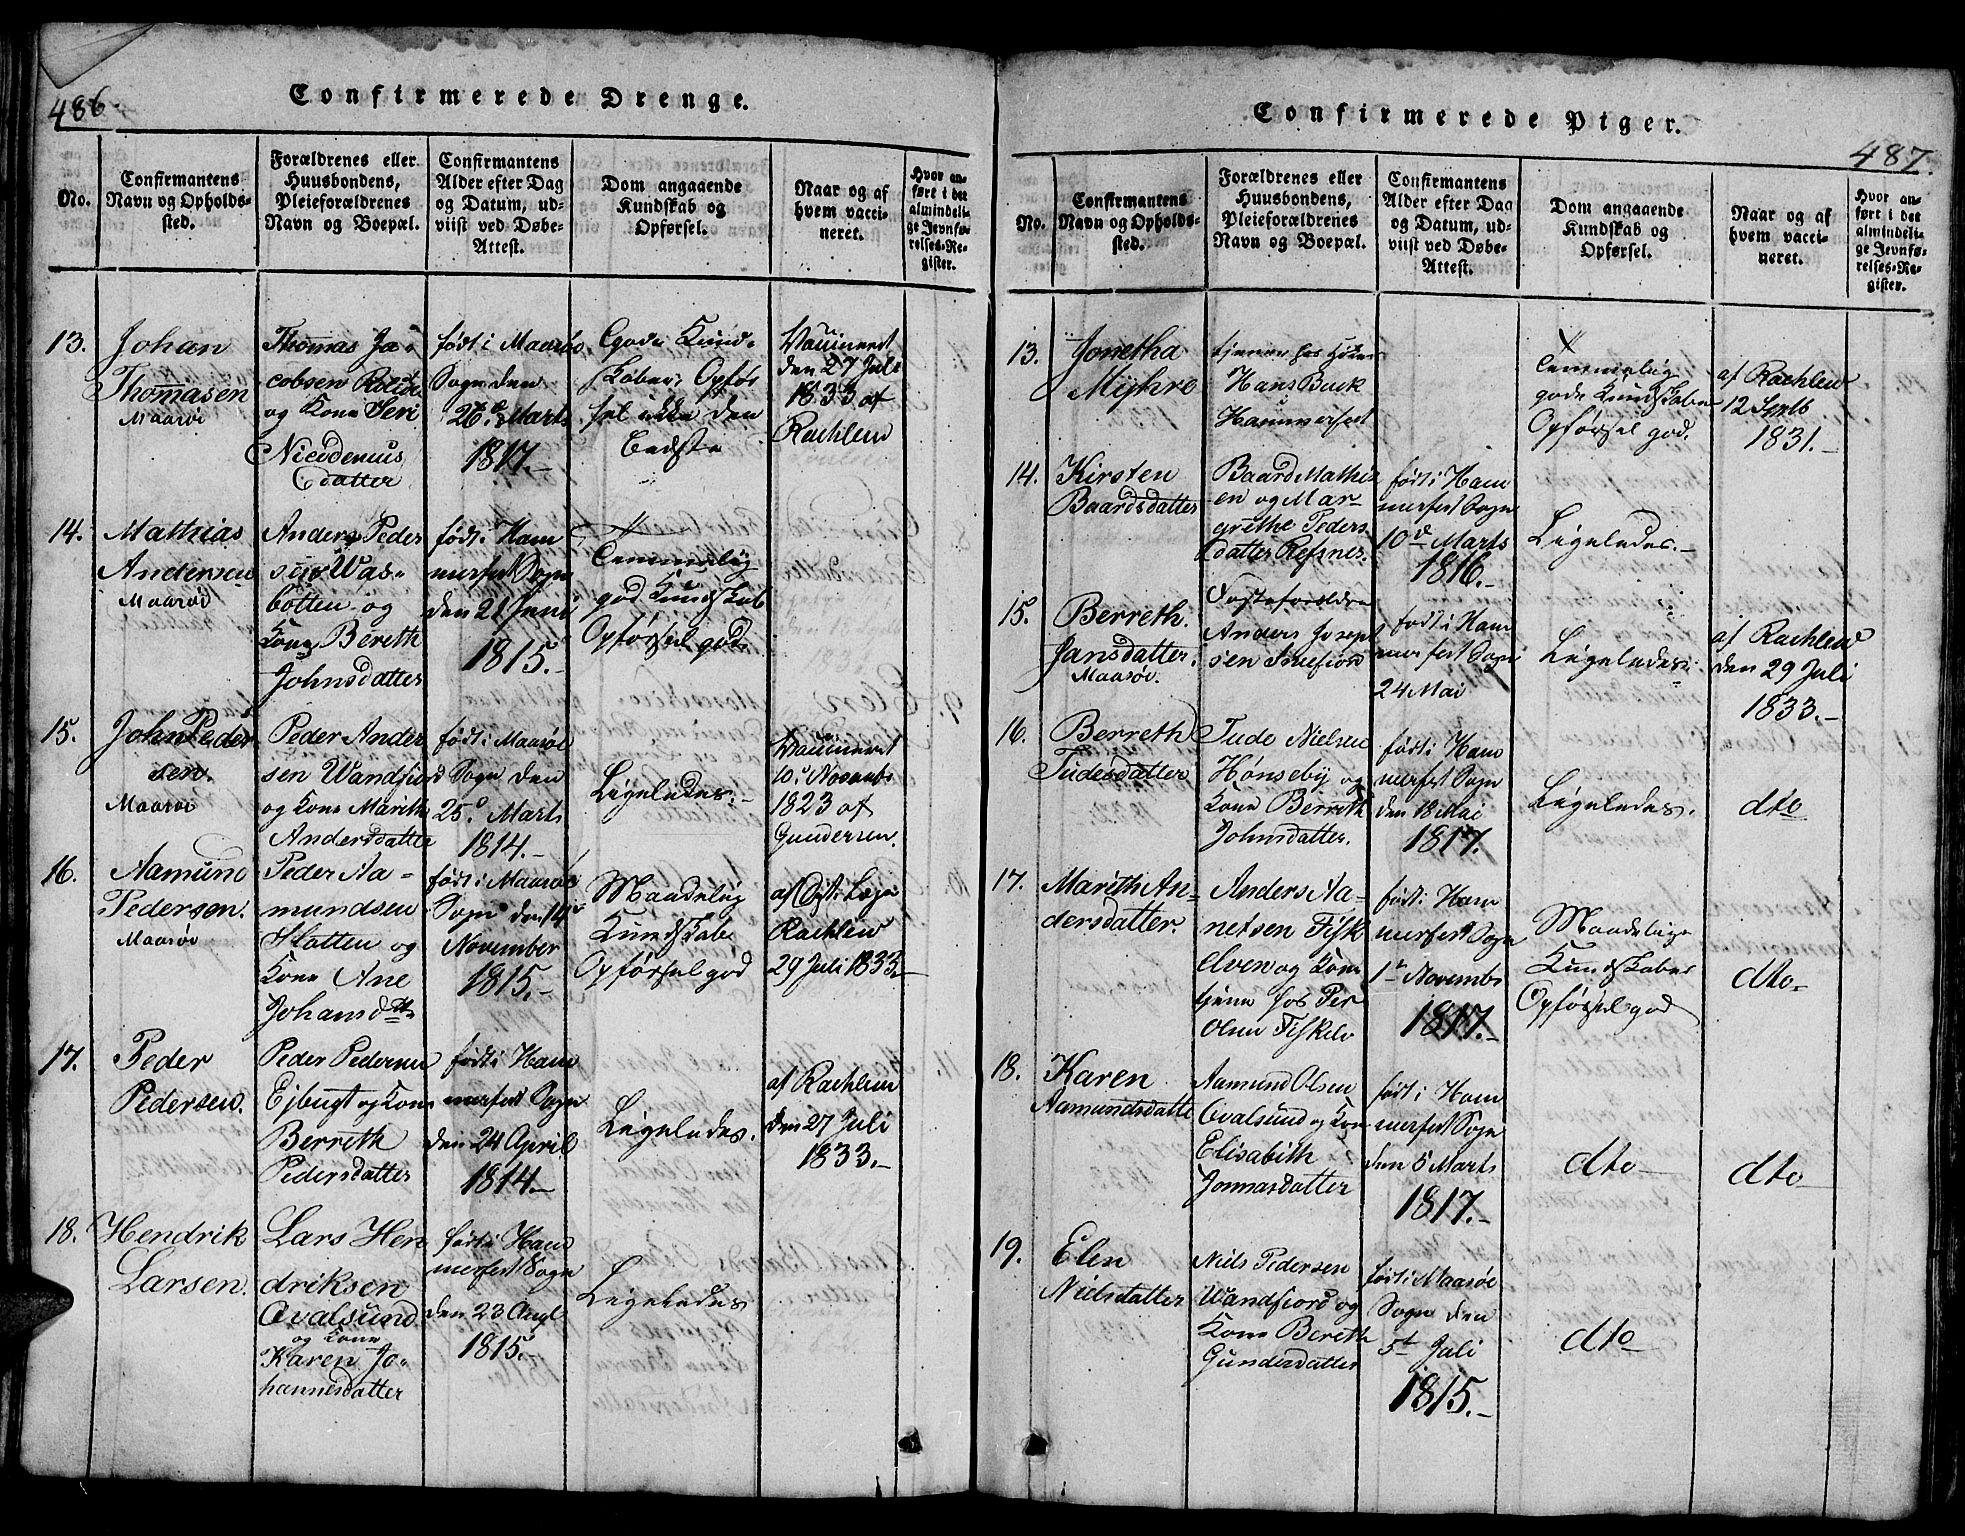 486.
Confirmerede Drenge.
No.
Confirmantens
Navn og Opholds-
sted.
Forældrenes eller
Huusbondens,
Pleieforældrenes
Navn og Boepæl.
Confirmantens
Alder efter Dag
og Datum, ud-
viist ved Døbe-
Attest.
Dom angaaende
Kundskab og
Opførsel.
Naar og af
hvem vacci-
neret.
Hvor an-
ført i det
almindeli-
ge Jevnfø-
relses-Re-
gister.
13.
Johan
Thomasen
Maasøe
Thomas Ja-
cobsen
og Kone Siri
Nicodemus
datter
født i Maasøe
Sogn den
26de Marts
1817.-
Gode Kund-
skaber, Opfør
sel ikke den
bedste
Vaccineret
den 27 Juli
1833 af
Rachlew
14.
Mathias
Andersen
Maasøe
Anders Peder
sen Was-
botten og
Kone Bereth
Johnsdatter
født i Ham
merfest Sogn
den 21 Juni
1815.-
Temmelig
god Kundskab
Opførsel god.
15.
John Peder
sen.
Maasøe
Peder Ander
sen Wandfiord
og Kone Marith
Andersdatter
født i Maasøe
Sogn den
25de Marts
1814.-
Ligeledes.-
Vaccineret
10de Novemb
1823 af
Gundersen.
16.
Aamund
Pedersen.
Maasøe
Peder Aa-
mundsen
Slatten og
Kone Ane
Johansd
født i Maasøe
Sogn den 14de
November
1815.-
Maadelig
Kundskab
Opførsel god
af Dist: Læge
Rachlew
29 Juli 1833.-
17.
Peder
Pedersen.
Peder Pedersen
Ejbugt og Kone
Berreth
Pedersdatter
født i Ham
merfest Sogn
den 24 April
1814.-
Ligeledes.
af Rachlew
den 27 Juli
1833.-
18.
Hendrik
Larsen.
Lars Hen
driksen
Qvalsund
og Kone
Karen Jo-
hannesdatter
født i Ham
merfest Sogn
den 23 Augl
1815.-
Ligeledes
Confirmerede Piger.
487.
No.
Confirmantens
Navn og Opholds-
sted.
Forældrenes eller
Huusbondens,
Pleieforældrenes
Navn og Boepæl.
Confirmantens
Alder efter Dag
og Datum, ud-
viist ved Døbe-
Attest.
Dom angaaende
Kundskab og
Opførsel.
Naar og af
hvem vacci-
neret.
Hvor an-
ført i det
almindeli-
ge Jevnfø-
relses-Re-
gister.
13.
Jonetha
Myhre
tjener hos
Hans Buck
Hammerfest
Temmelig
gode Kundskaber
Opførsel god.
af Rachlew
12 Septb
1831.-
14.
Kirsten
Baardsdatter
Baard Mathis
en og Mar
grethe Peders
datter Refsnes.
født i Ham
merfest Sogn
10de Marts
1816.-
Ligeledes.-
15.
Berreth.
Jansdatter.
Maasøe.
Fosterforældre
Anders Joseph
sen Snefiord
født i Ham
merfest Sogn
24 Mai
Ligeledes.
af Rachlew
den 29 Juli
1833.-
16.
Berreth
Tudesdatter
Tude Nielsen
Hønseby og
Kone Berreth
Johnsdatter.
født i Ham
merfest Sogn
den 18 Mai
1817.
Ligeledes.
dto
17.
Marith An-
dersdatter.
Anders Aa-
netsen Fisk
elven og Kone
tjene hos Per
Olsen Fiskelv
født i Ham
merfest Sogn
1te Novemb
1817.-
Maadelige
Kundskaber
Opførsel god
dto-
18.
Karen
Aamundsdatte
Aamund Olsen
Qvalsund og Kone
Elisabith
Jonnasdatter
født i Ham
merfest Sogn
den 5 Marts
1817.-
dto-
dto-
19.
Elen
Nielsdatter
Niels Pedersen
Wandfiord og
Kone Bereth
Gundersdatter
født i Maasøe
Sogn den
5te Juli
1815.-
dto